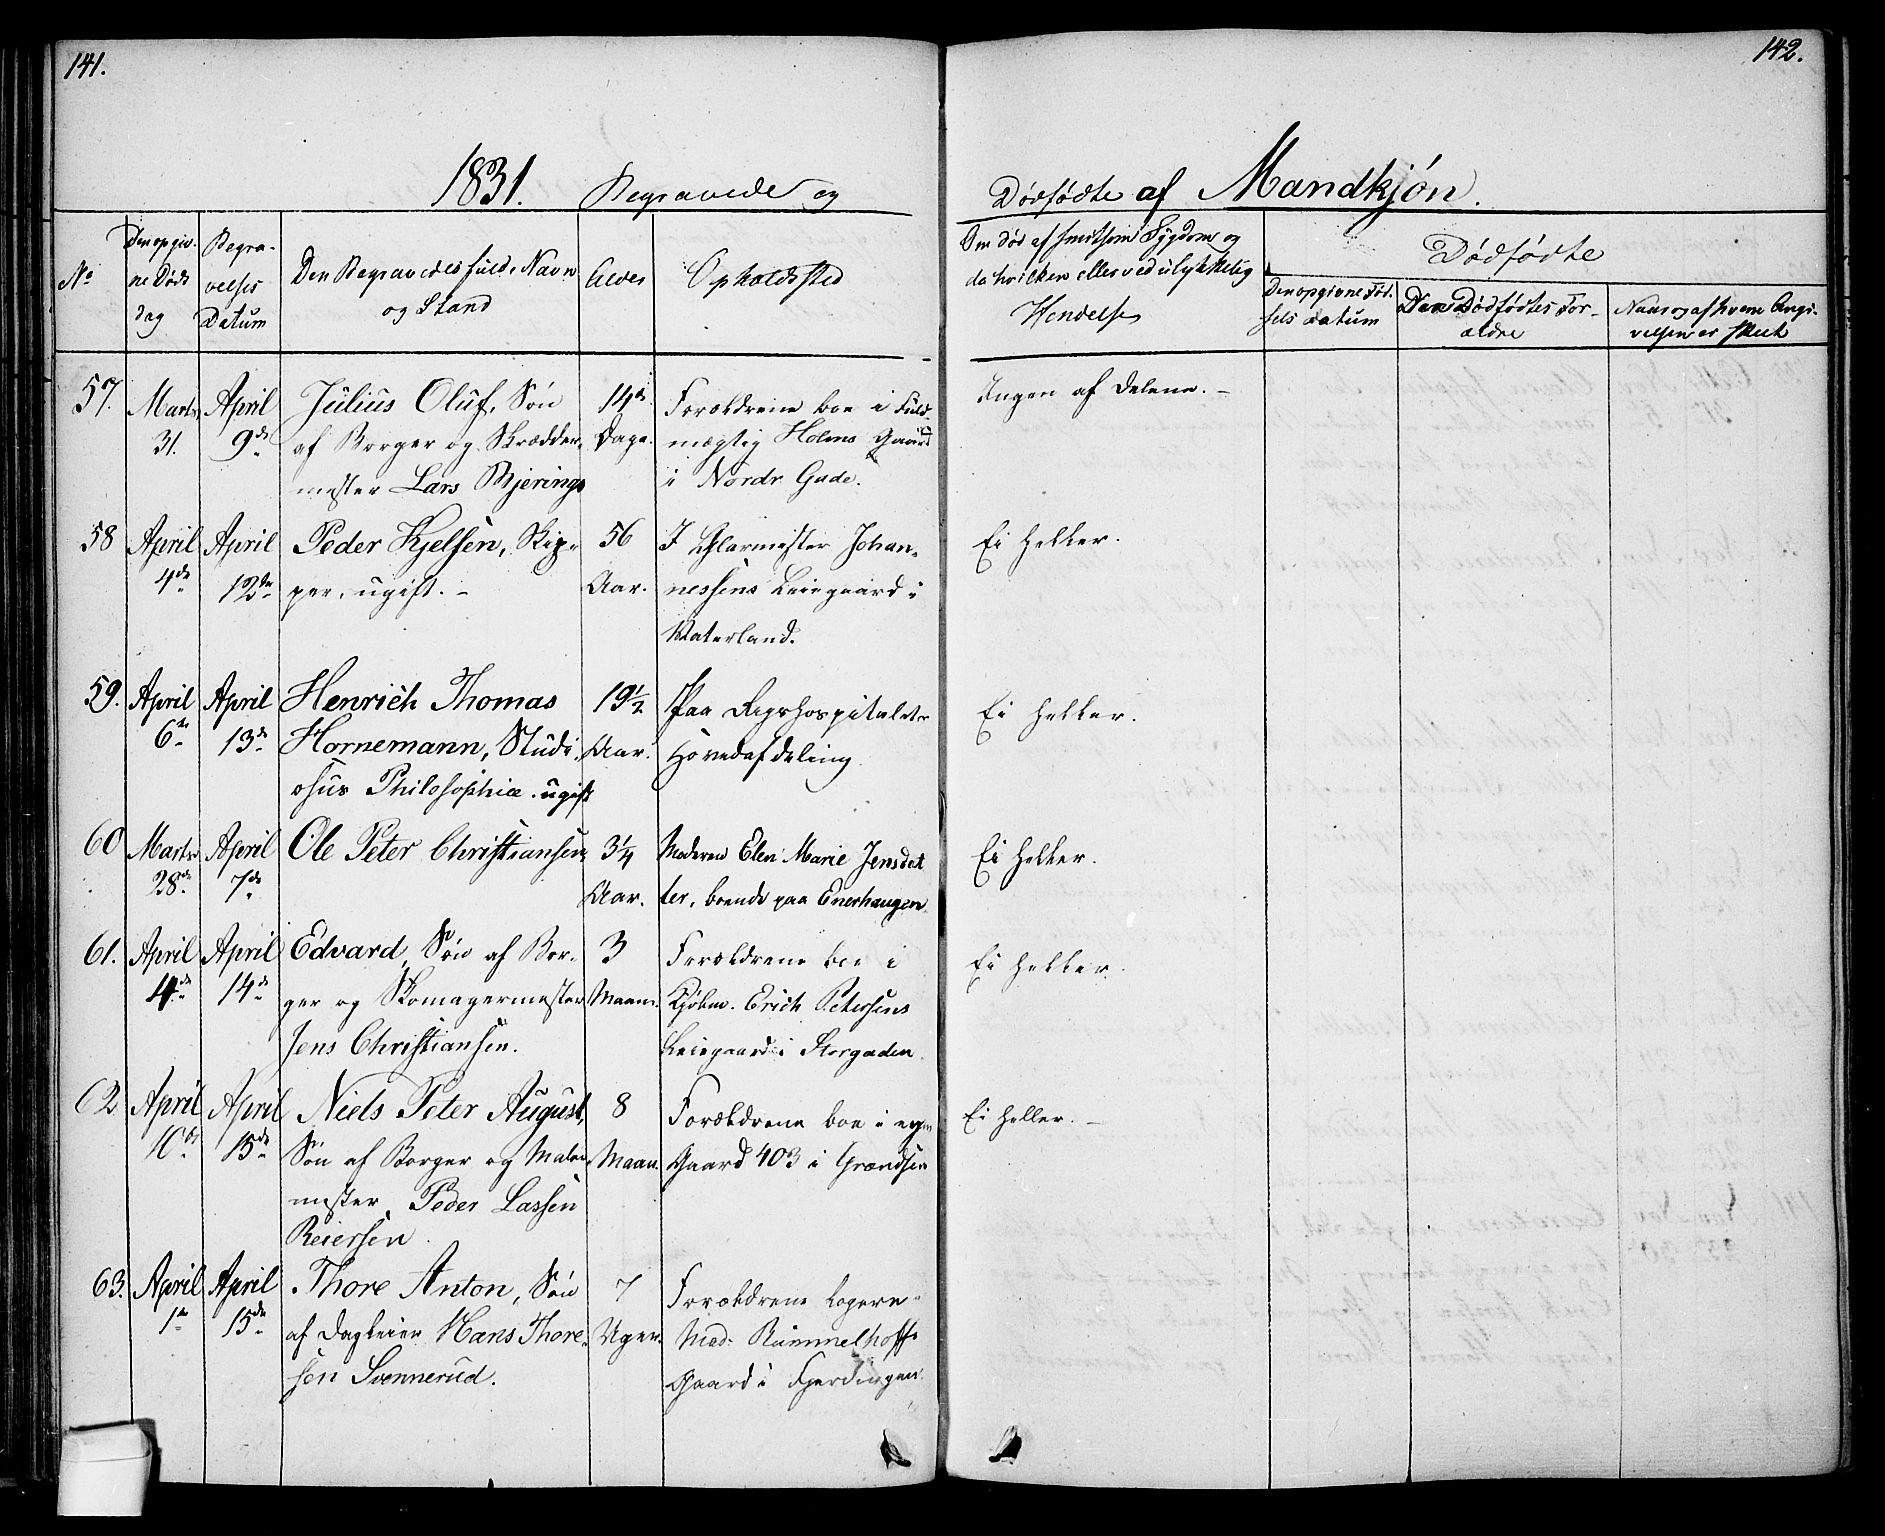 141.
142.
1831. Begravede og
Dødfødte af Mandkjön.
No
Den opgiv-
ne Døds
dag
Begra-
velses
Datum
Den Begravedes fulde Navn
og Stand
Alder
Opholdssted
Om død af smitsom Sygdom og
da hvilken eller ved ulykkelig
Hendelse
Dødfødte
Den opgivne Fød-
sels Datum
Den Dødfødtes For-
ældre
Naar og af hvem Angi-
velsen er skeet
57. Marts 31. April 9de Julius Oluf, Sön
af Borger og Skrædder-
mester Lars Bjerings
14 Dage.
Forældrene boe i Fuld-
mægtig Holms Gaard
i Nordr Gade.
Ingen af Delene. -
58 April 4de April 12te Peder Kjelsen, Skip-
per, ugift. -
56 Aar.
I Glarmester Johan-
nessens Leiegaard i
Vaterland.
Ei heller.
59. April 6te April 13de Henrich Thomas
Hornemann, Studi-
osus Philosophiæ. ugift
19½ Aar.
Paa Rigshospitalets
Hovedafdeling
Ei heller.
60 Marts 28de April 7de Ole Peter Christiansen,
3¼ Aar.
Moderen Elen Marie Jensdat
ter, boende paa Enerhaugen.
Ei heller.
61. April 4de April 14de Edvard, Sön af Bor-
ger og Skomagermester
Jens Christiansen.
3 Maan.
Forældrene boe i
Kjøbm. Erich Petersens
Leiegaard i Storgaden
Ei heller.
62 April 10de April 15de Niels Peter August,
Sön af Borger og Maler
mester Peder Lassen
Reiersen.
8 Maan.
Forældrene boe i egen
Gaard 403 i Grændsen
Ei heller. -
63. April 1te April 15de Thore Anton, Sön
af Dagleier Hans Thore-
sen Svennerud.
7 Uger.
Forældrene logere
Mad. Rummelhoffs
Gaard i Fjerdingen.